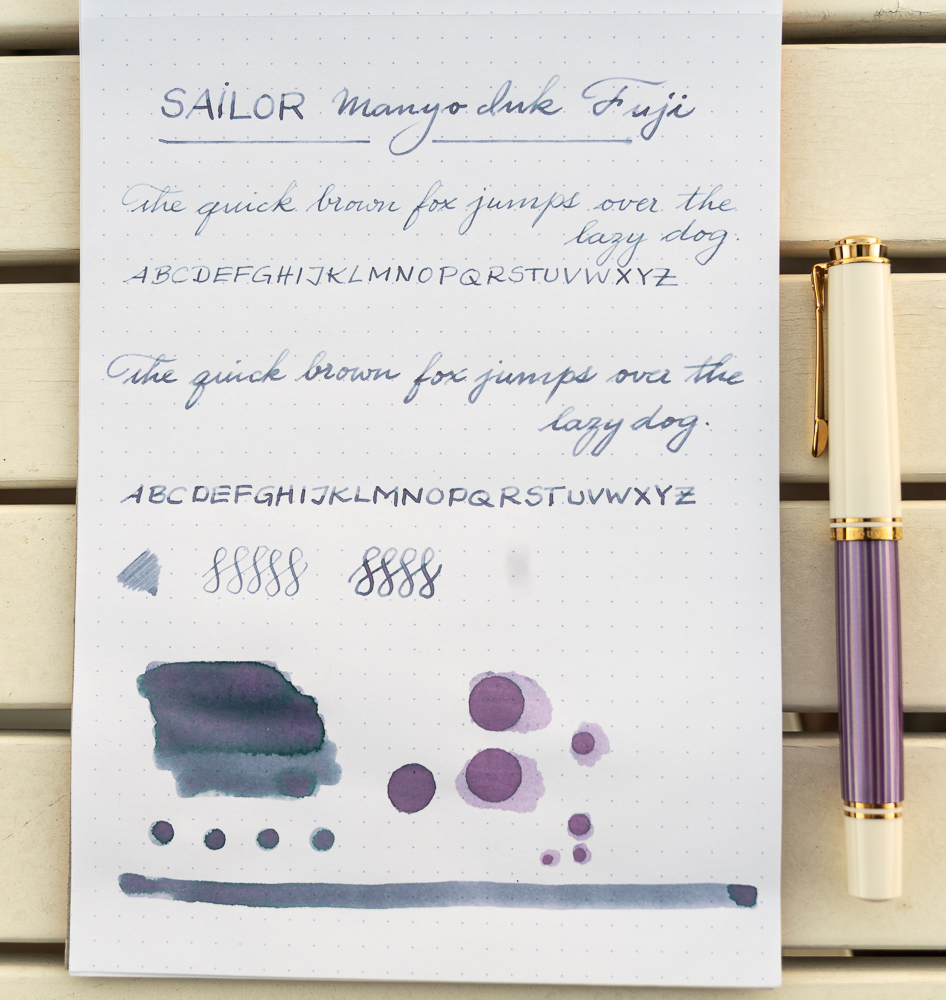 SAiLOR Manyo Ink Fuji
The quick brown fox jumps over the
lazy dog.
ABCDEFGHIJKLMNOPQRSTUVWXYZ
The quick brown fox jumps over the
lazy dog.
ABCDEFGHIJKLMNOPQRSTUVWXYZ